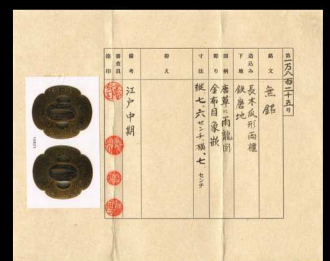 第一万八百二十五号
銘文
無銘
造込み
長木瓜形両櫃
下地
鉄磨地
図柄
唐草に雨龍図
彫り
金布目象嵌
寸法
縦七、六センチ 横、七センチ
抑え
備考
江戸中期
審査員
捺印